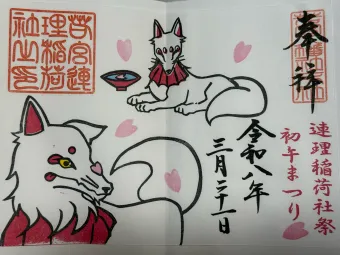 奉拝
連理稲荷社祭
初午まつり
令和八年
三月二十一日
苔宮連
理稲荷
社之印